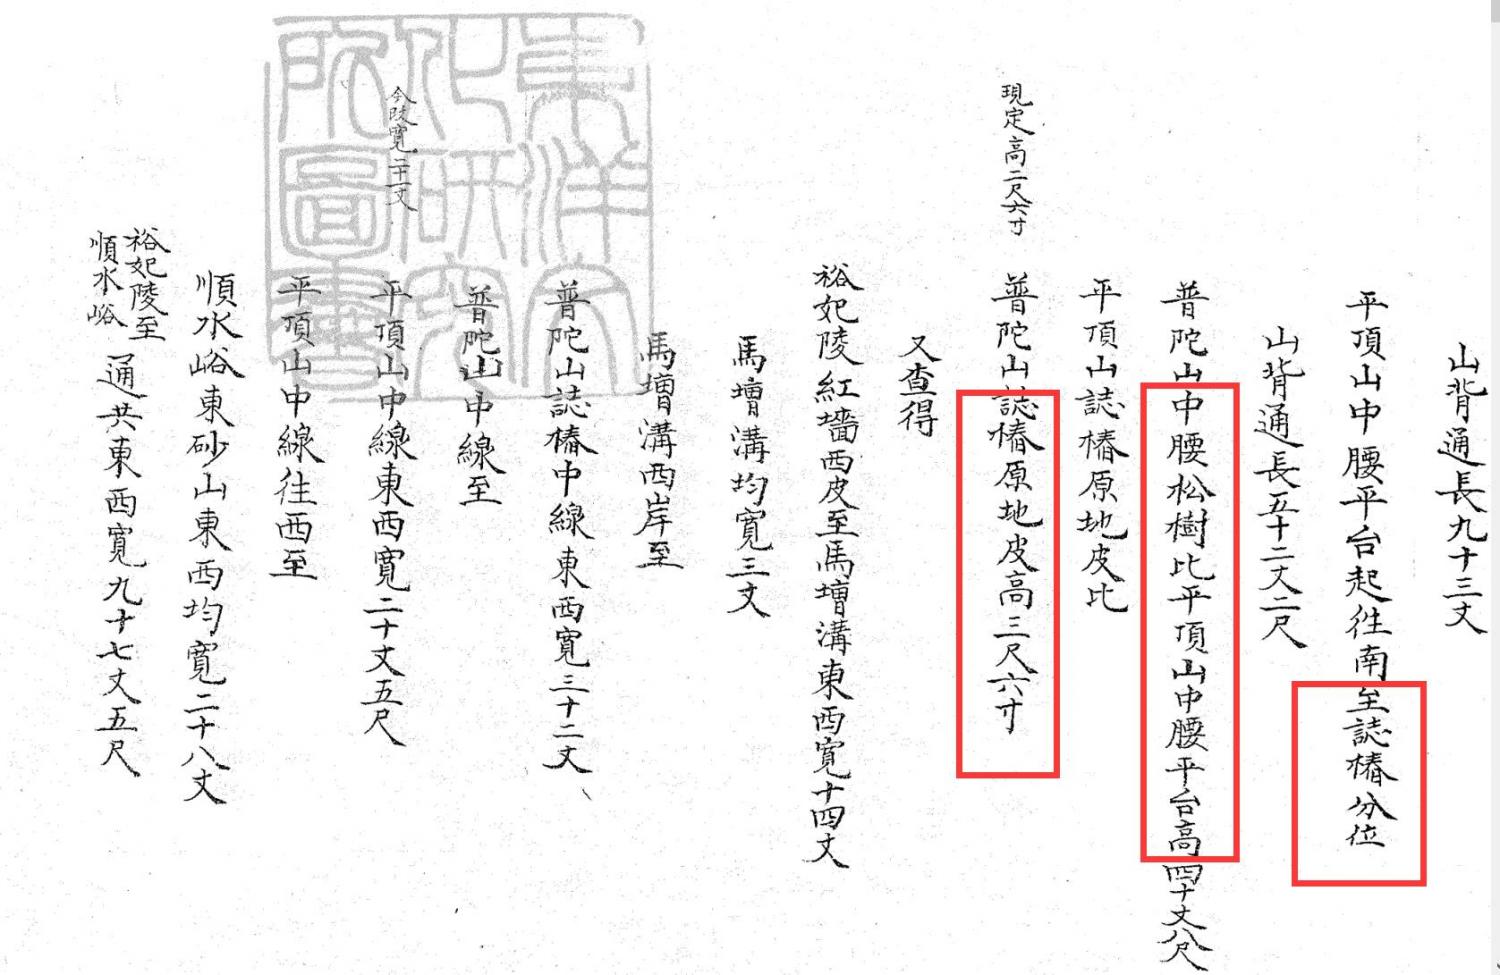 山背通長九十三丈
平頂山中腰平台起徃南至誌樁分位
山背通長五十二丈二尺
普陀山中腰松樹比平頂山中腰平台高四十丈八尺
平頂山誌樁原地皮比
現定高二尺六寸
普陀山誌樁原地皮高三尺六寸
又查得
裕妃陵紅墻西皮至馬壋溝東西寬十四丈
馬壋溝均寬三丈
馬壋溝西岸至
普陀山誌樁中線東西寬三十二丈
普陀山中線至
今改寬二十一丈
平頂山中線東西寬二十丈五尺
平頂山中線徃西至
順水峪東砂山東西均寬二十八丈
裕妃陵至
順水峪
通共東西寬九十七丈五尺
東洋文
化研究
所圖書